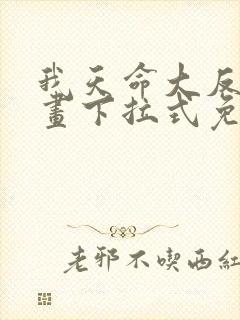 我天命大反
畫下拉式免
老邪不喫西紅